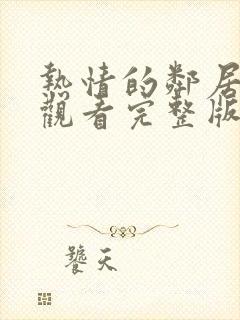 熱情的鄰居
觀看完整版
饕天